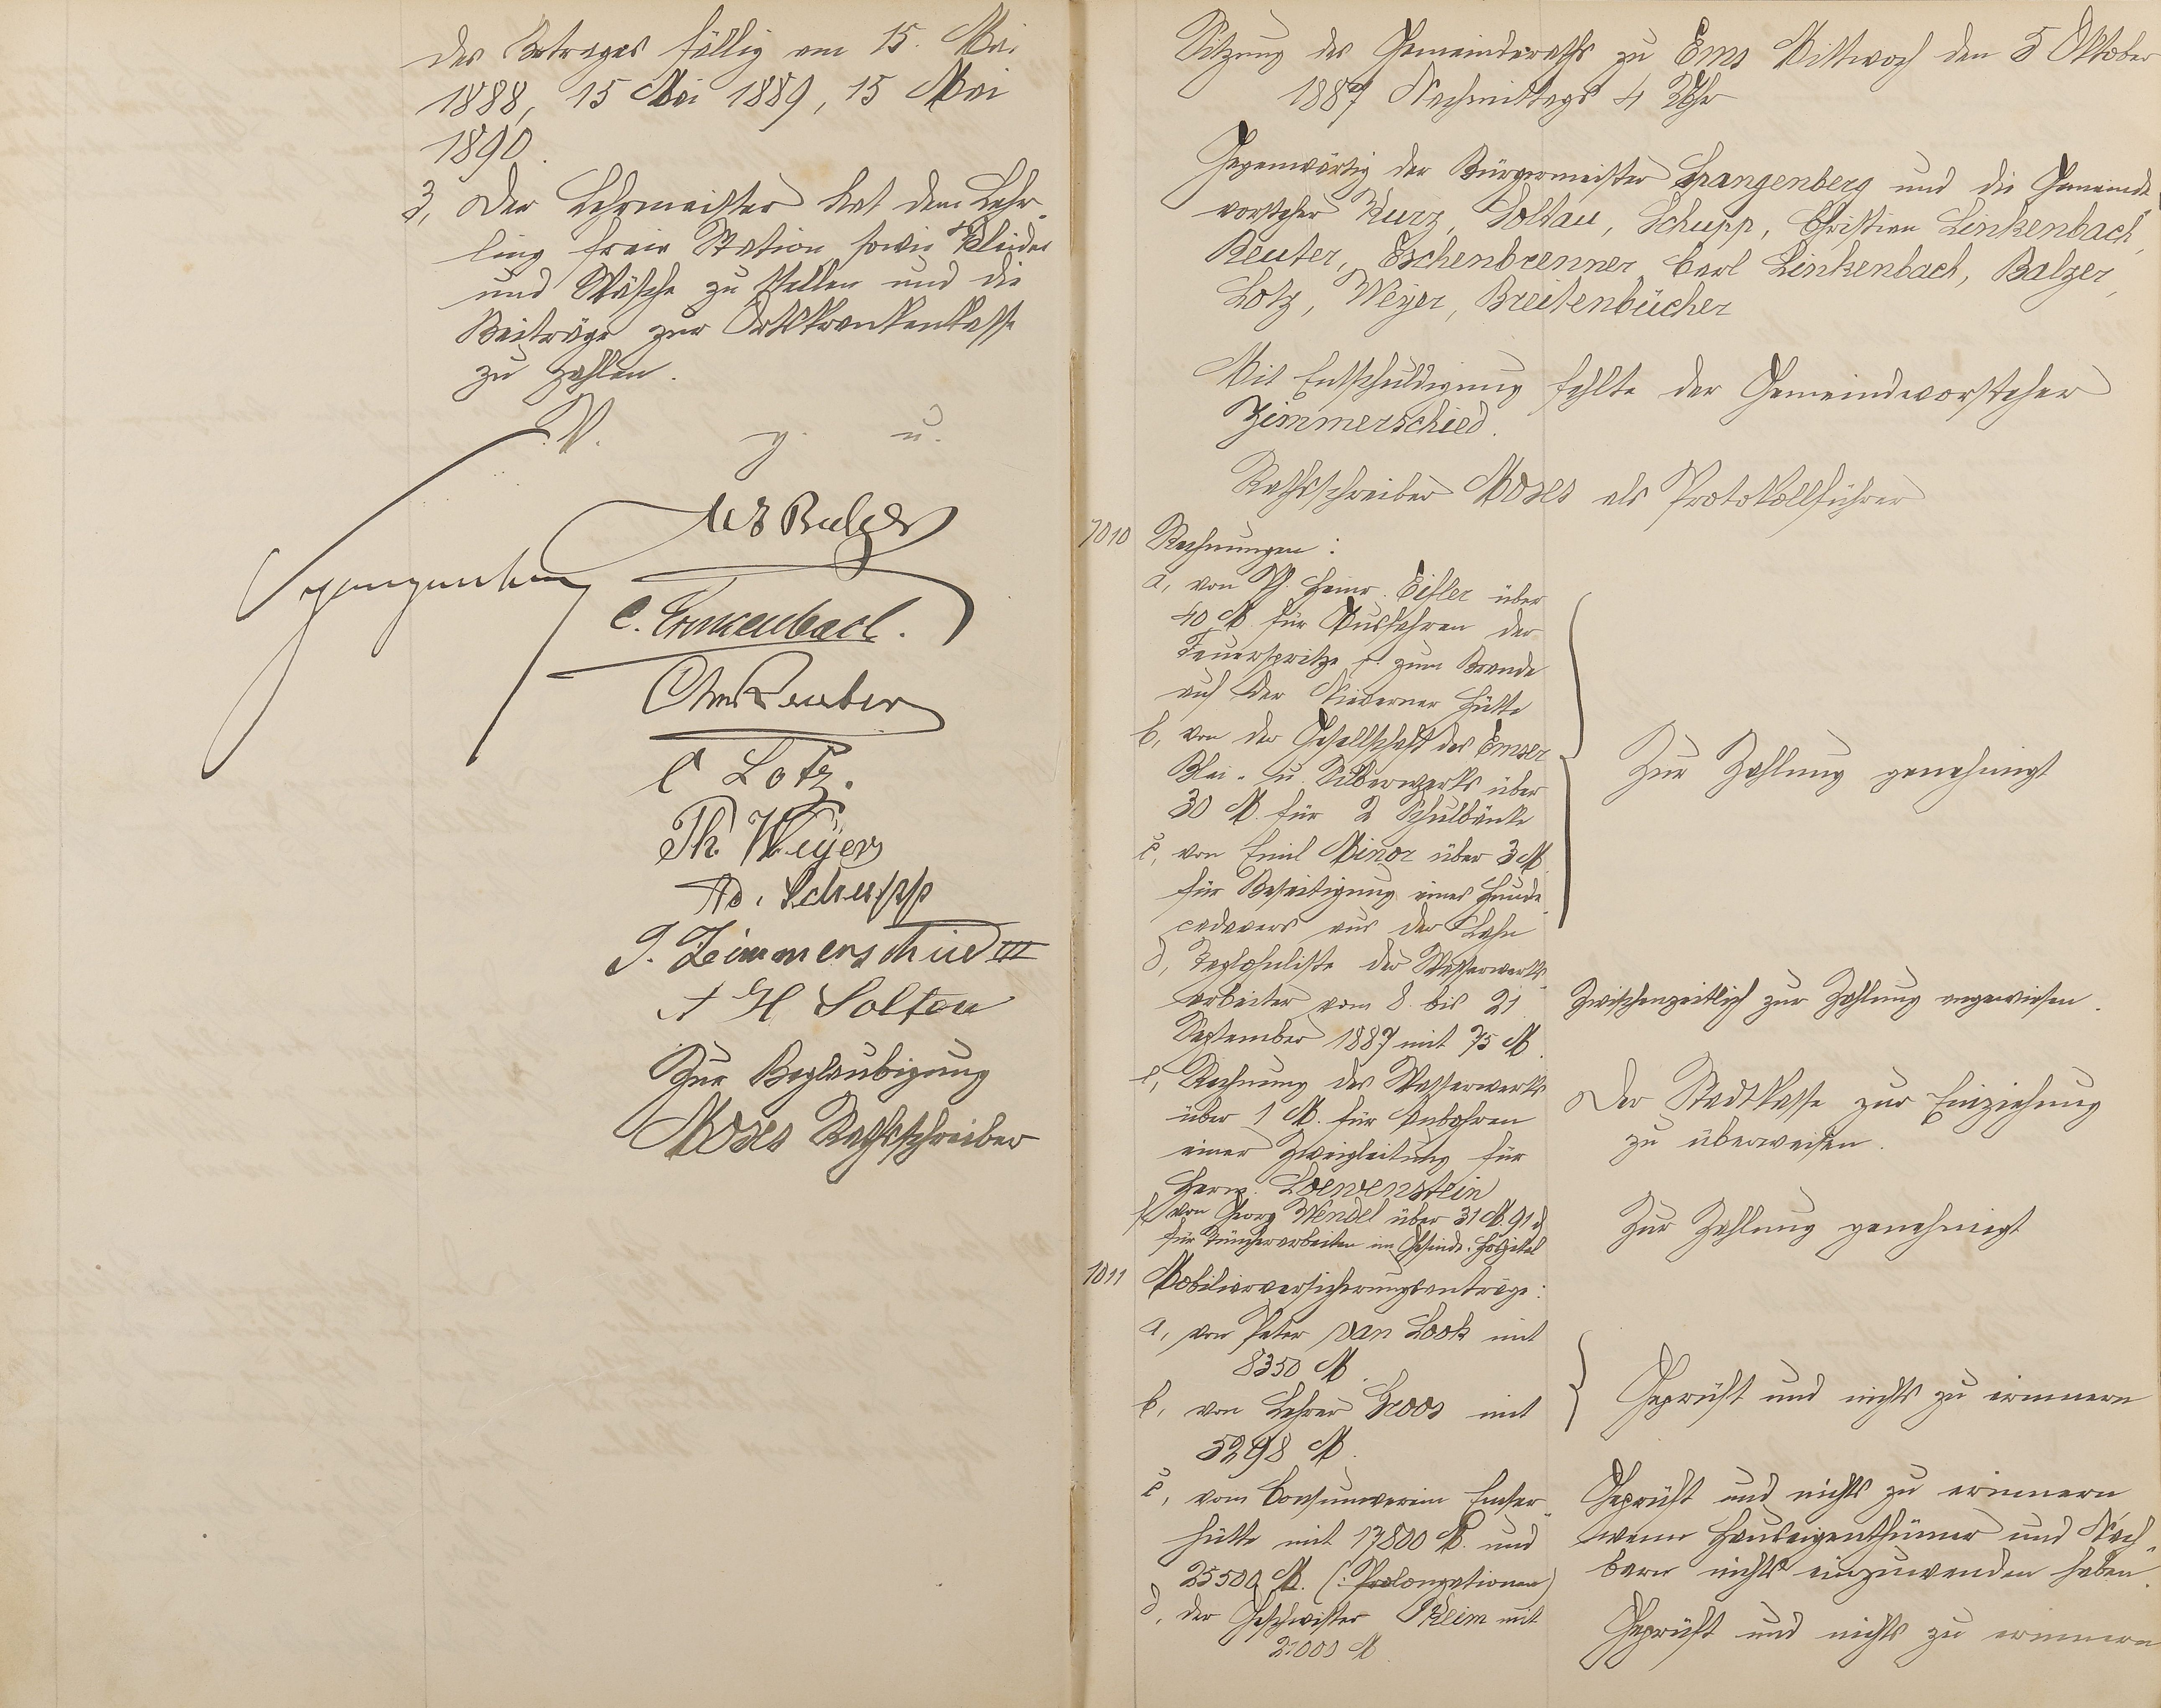 des Betrages fällig am 15. Mai
1888, 15 Mai 1889, 15 Mai
1890.
3, Der Lehrmeister hat dem Lehr-
ling freie Station sowie Kleider
und Wäsche zu stellen und die
Beiträge zur Ortskrankenkasse
zu zahlen.
V. g. u.
Spangenberg
Balzer
C. Linkenbach.
Chr Reuter
C Lotz.
Th Weyer
Ad. Schupp
P. Zimmerschied III
A H Soltau
Zur Beglaubigung
Moses Rathsschreiber
Sitzung des Gemeinderaths zu Ems Mittwoch den 5 Oktober
1887 Nachmittags 4 Uhr
Gegenwärtig der Bürgermeister Spangenberg und die Gemeinde-
vorsteher Kurz, Soltau, Schupp, Christian Linkenbach,
Reuter, Eschenbrenner, Carl Linkenbach, Balzer,
Lotz, Weyer, Breitenbücher
Mit Entschuldigung fehlte der Gemeindevorsteher
Zimmerschied.
Rathsschreiber Moses als Protokollführer
1010 Rechnungen:
a, von Ph. Heinr. Eisler über
40 M. für Ausfahren der
Feuerspritze p. zum Brande
auf der Nieverner Hütte
b, von der Gesellschaft des Emser
Blei- u. Silberwerks über
30 M. für 2 Schulbänke
c, von Emil Minor über 3 M.
für Beseitigung eines Hunde-
cadavers aus der Lahn
Zur Zahlung genehmigt
d, Taglohnliste der Wasserwerks-
arbeiter vom 8. bis 21
September 1887 mit 75 M.
Zwischenzeitlich zur Zahlung angewiesen.
e, Rechnung des Wasserwerks
über 1 M. für Anbohren
einer Zweigleitung für
Herm. Loewenstein
Der Stadtkasse zur Einziehung
zu überweisen.
f, von Georg Wendel über 31 M. 91 d
für Tüncherarbeiten im Gesinde-Hospital
Zur Zahlung genehmigt
1011 Mobiliarversicherungsanträge:
a, von Peter van Look mit
8350 M.
b, von Lehrer Groos mit
5298 M.
Geprüft und nichts zu erinnern
c, vom Consumverein Emser-
hütte mit 17800 M. und
25500 M. (: Prolongationen)
Geprüft und nichts zu erinnern
wenn Hauseigenthümer und Nach-
barn nichts einzuwenden haben.
d, der Geschwister Kleim mit
21000 M.
Geprüft und nichts zu erinnern